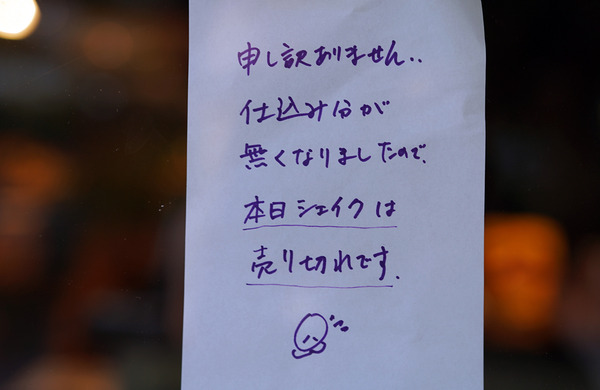 申し訳ありません..
仕込み分が
無くなりましたので、
本日シェイクは
売り切れです.